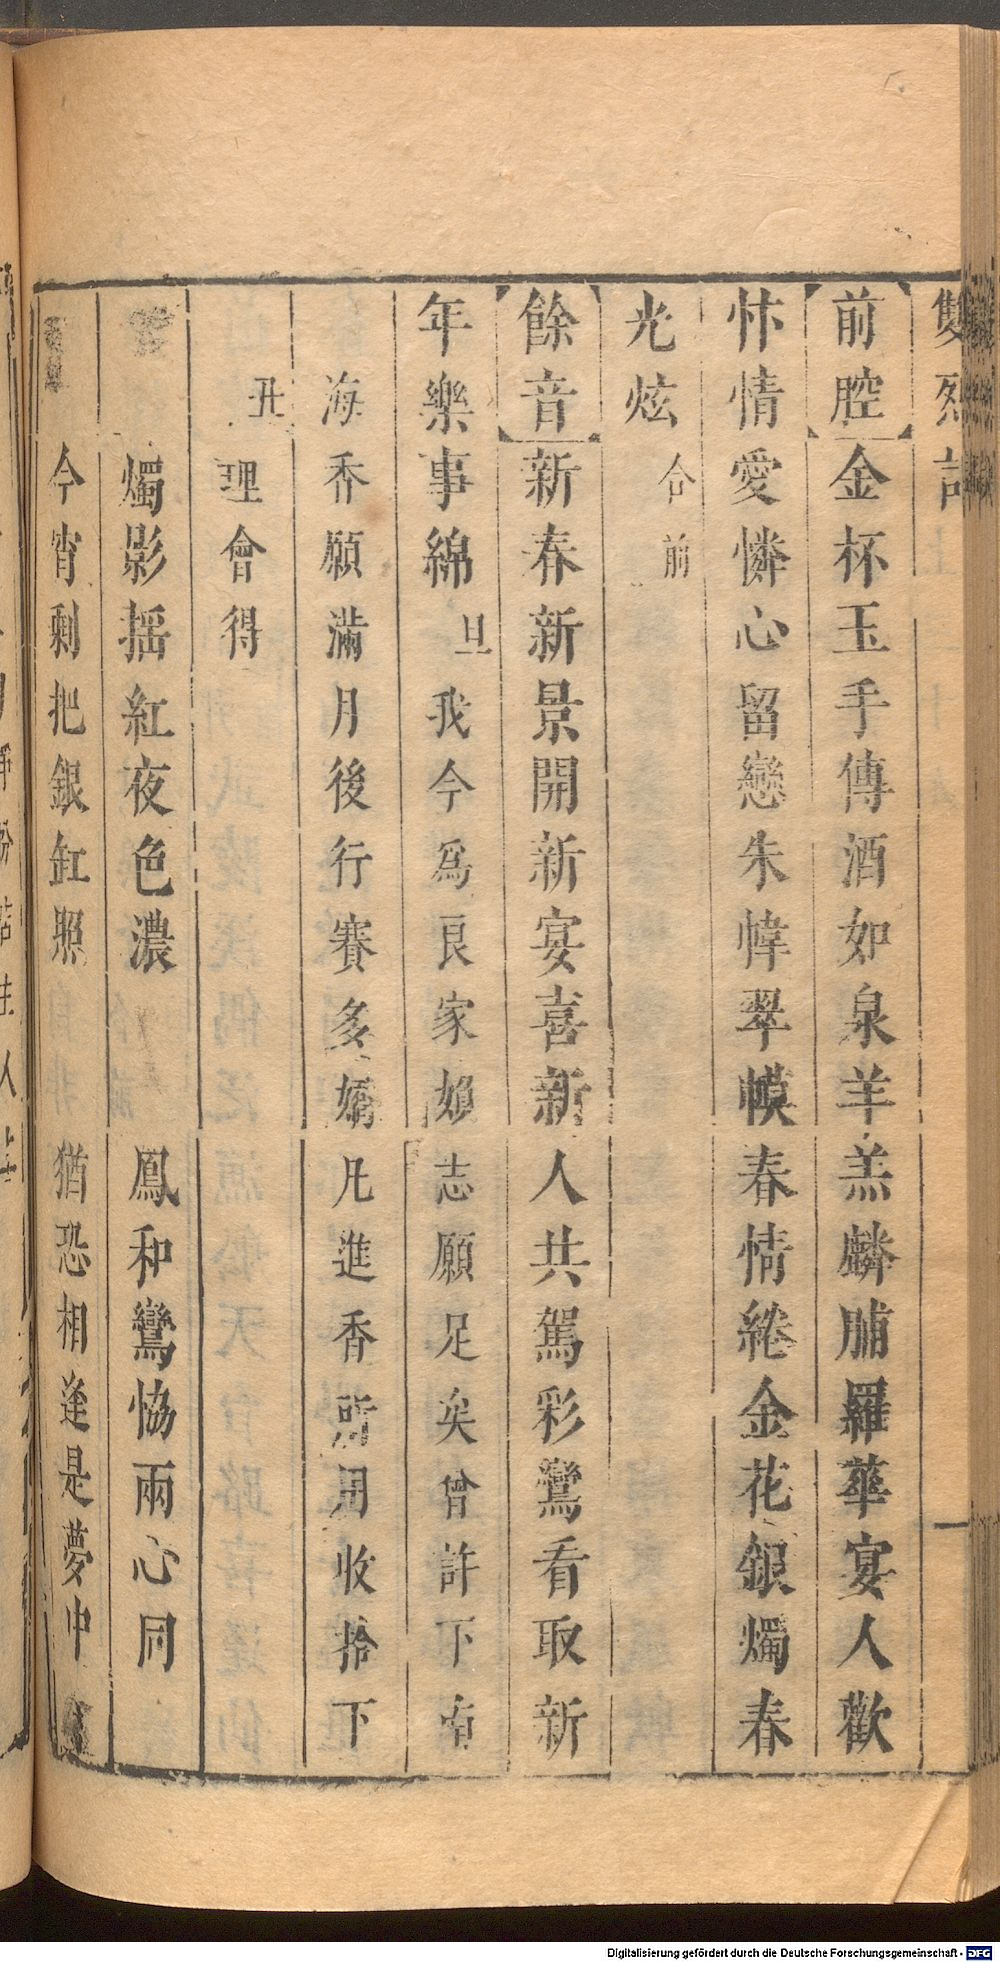 雙烈記
前腔金杯玉手傳酒如泉羊羔麟脯羅華宴人歡
忭情愛憐心留戀朱幃翠幙春情綣金花銀燭春
光炫 合前
餘音新春新景開新宴喜新人共駕彩鸞看取新
年樂事綿 旦 我今爲良家媍志願足矣曾許下南
海香願滿月後行賽多嬌凡進香所用收拾下
丑 理會得
燭影搖紅夜色濃 鳳和鸞協兩心同
今宵剩把銀缸照 猶恐相逢是夢中
Digitalisierung gefördert durch die Deutsche Forschungsgemeinschaft - DFG